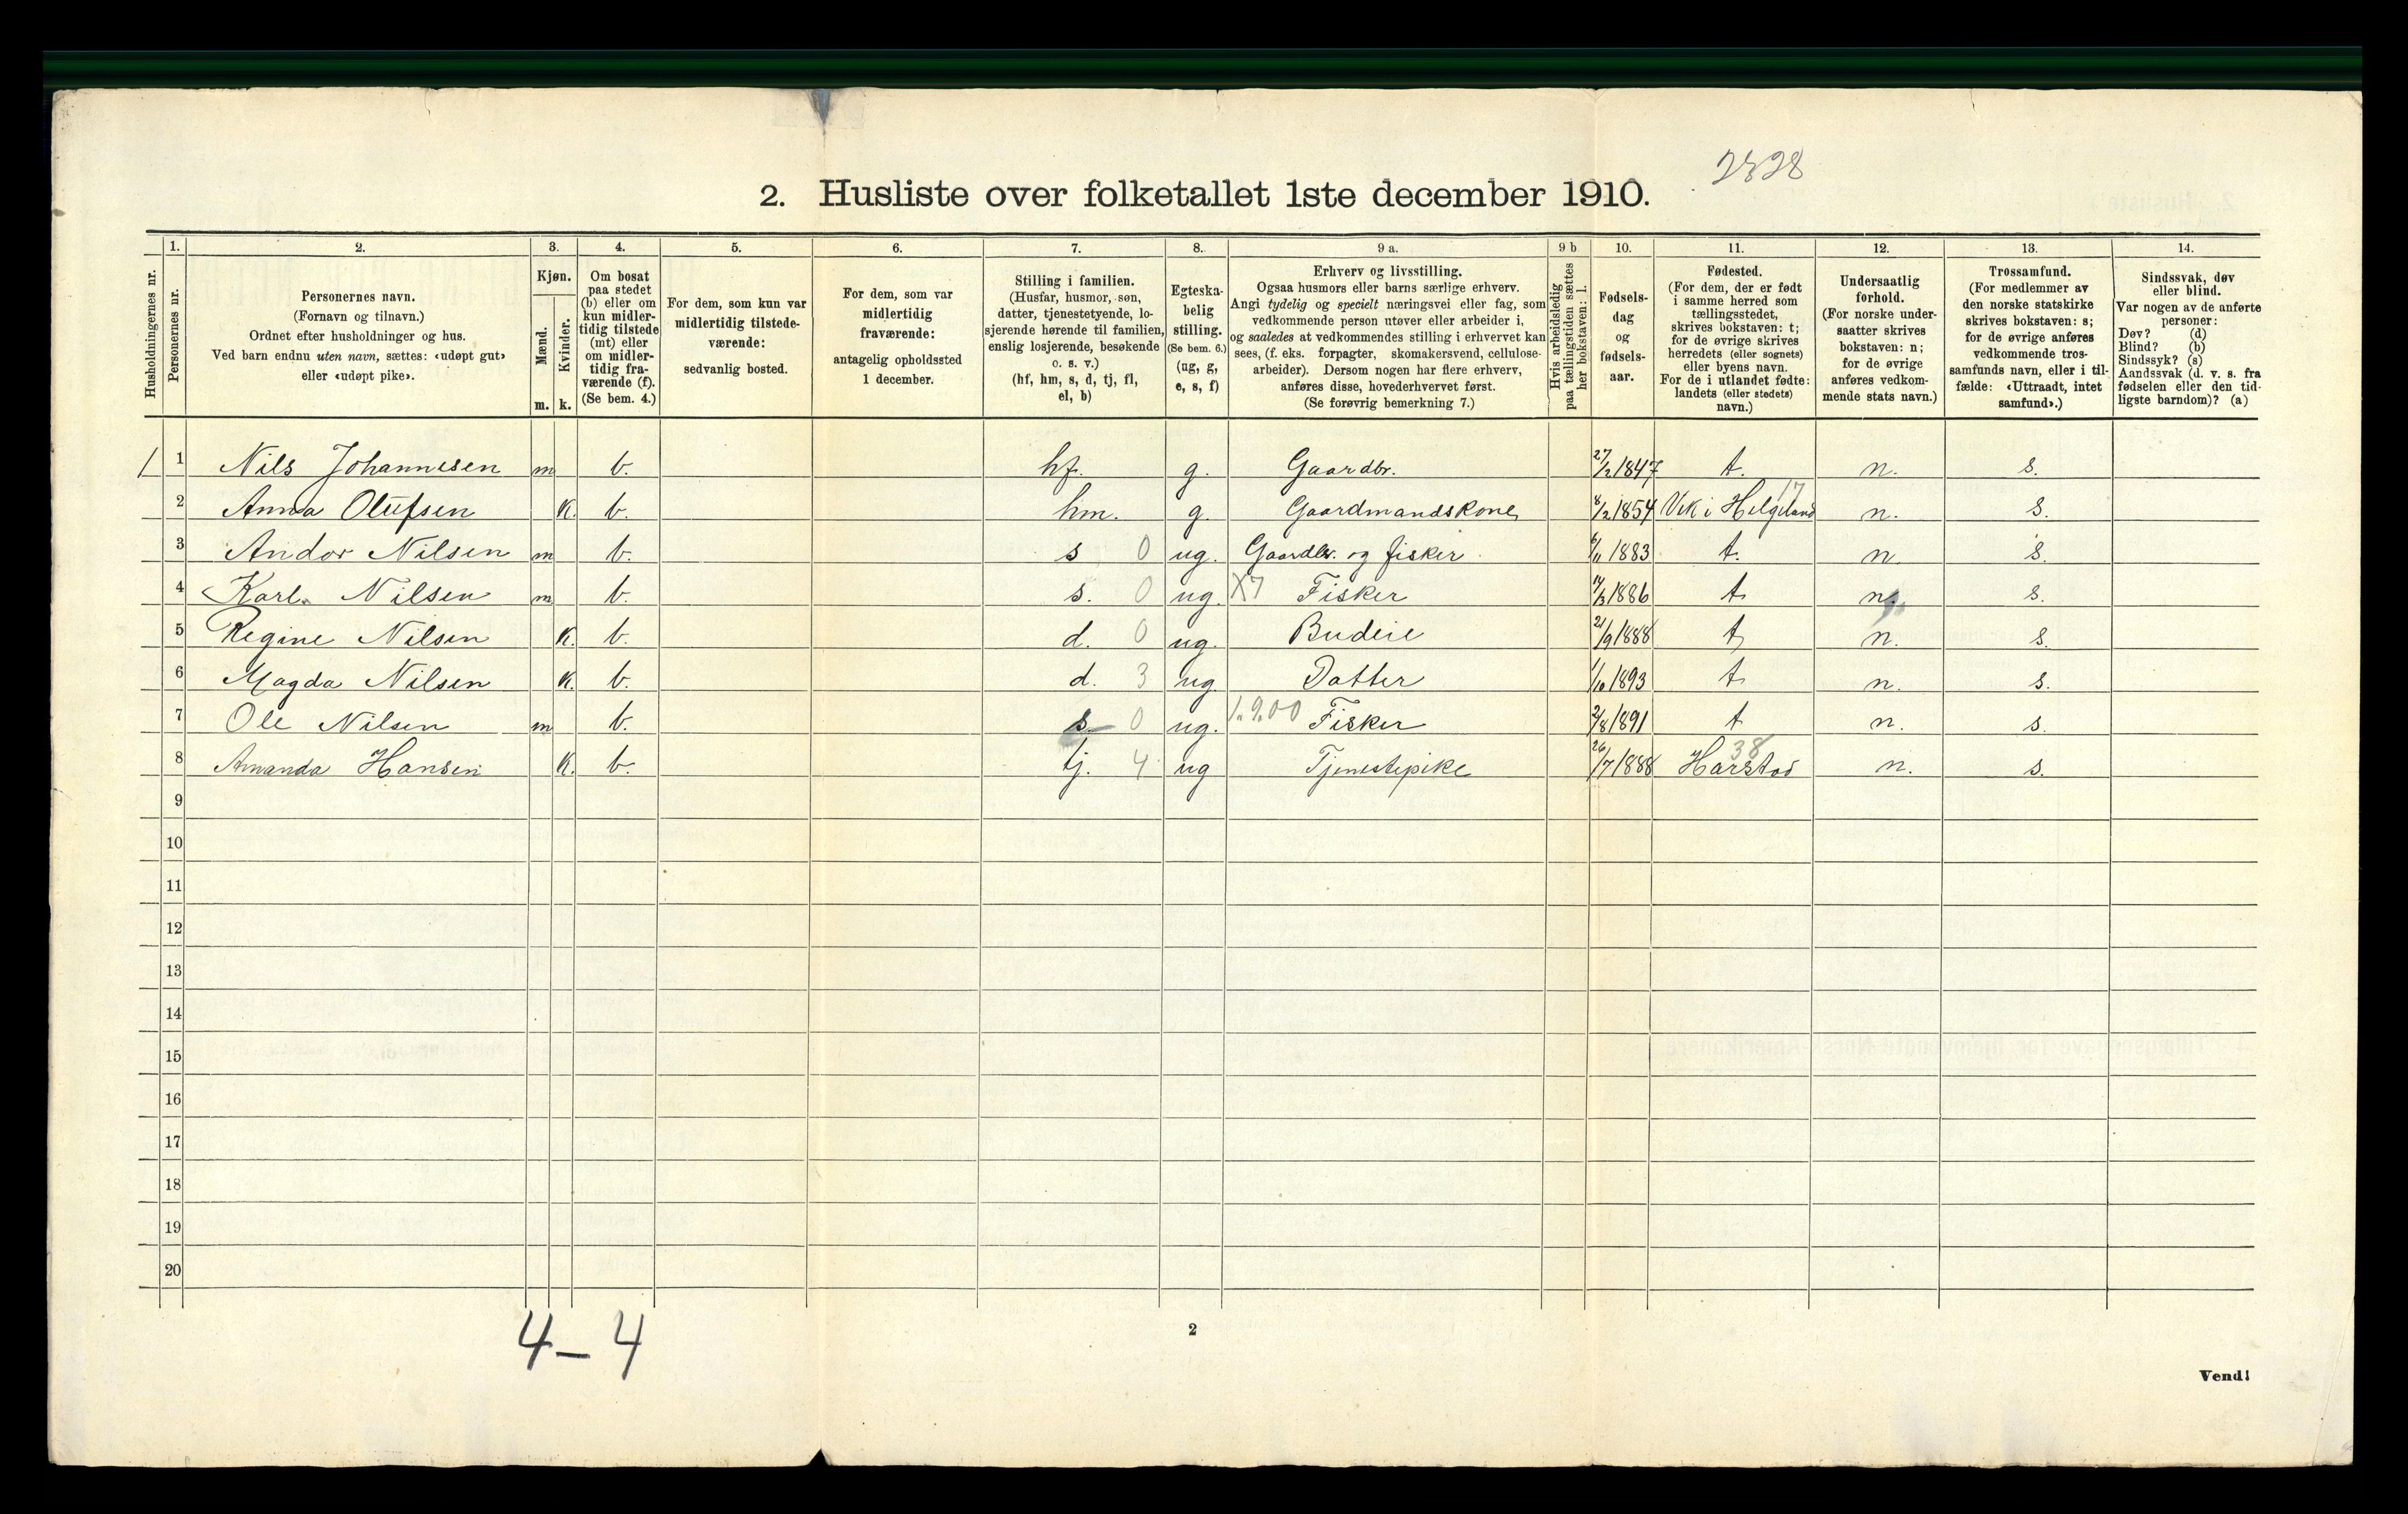 2328
2. Husliste over folketallet 1ste december 1910.
Husholdningernes nr.
1.
Personernes nr.
2.
Personernes navn.
(Fornavn og tilnavn.)
Ordnet efter husholdninger og hus.
Ved barn endnu uten navn, sættes: «udøpt gut»
eller «udøpt pike».
3.
Kjøn.
Mænd.
m.
Kvinder.
k.
4.
Om bosat
paa stedet
(b) eller om
kun midler-
tidig tilstede
(mt) eller
om midler-
tidig fra-
værende (f).
(Se bem. 4.)
5.
For dem, som kun var
midlertidig tilstede-
værende:
sedvanlig bosted.
6.
For dem, som var
midlertidig
fraværende:
antagelig opholdssted
1 december.
7.
Stilling i familien.
(Husfar, husmor, søn,
datter, tjenestetyende, lo-
sjerende hørende til familien,
enslig losjerende, besøkende
o. s. v.)
(hf, hm, s, d, tj, fl,
el, b)
8.
Egteska-
belig
stilling.
(Se bem. 6.)
(ug, g,
e, s, f)
9 a.
Erhverv og livsstilling.
Ogsaa husmors eller barns særlige erhverv.
Angi tydelig og specielt næringsvei eller fag, som
vedkommende person utøver eller arbeider i,
og saaledes at vedkommendes stilling i erhvervet kan
sees, (f. eks. forpagter, skomakersvend, cellulose-
arbeider). Dersom nogen har flere erhverv,
anføres disse, hovederhvervet først.
(Se forøvrig bemerkning 7.)
9 b
Hvis arbeidsledig
paa tællingstiden sættes
her bokstaven: l.
10.
Fødsels-
dag
og
fødsels-
aar.
11.
Fødested.
(For dem, der er født
i samme herred som
tællingsstedet,
skrives bokstaven: t;
for de øvrige skrives
herredets (eller sognets)
eller byens navn.
For de i utlandet fødte:
landets (eller stedets)
navn.)
12.
Undersaatlig
forhold.
(For norske under-
saatter skrives
bokstaven: n;
for de øvrige
anføres vedkom-
mende stats navn.)
13.
Trossamfund.
(For medlemmer av
den norske statskirke
skrives bokstaven: s;
for de øvrige anføres
vedkommende tros-
samfunds navn, eller i til-
fælde: «Uttraadt, intet
samfund».)
14.
Sindssvak, døv
eller blind.
Var nogen av de anførte
personer:
Døv? (d)
Blind? (b)
Sindssyk? (s)
Aandssvak (d. v. s. fra
fødselen eller den tid-
ligste barndom)? (a)
1 1 Nils Johannesen m b. hf. g. Gaardbr. 27/2 1847 t. n. s.
2 Anna Olufsen k. b. hm. g. Gaardmandskone 8/2 1854 Vik i Helgeland 17 n. s.
3 Andor Nilsen m b. s 0 ug. Gaardbr. og fisker 6/11 1883 t. n. s.
4 Karl Nilsen m b. s. 0 ug. X7 Fisker 14/3 1886 t n. s.
5 Regine Nilsen k. b. d. 0 ug. Budeie 21/9 1888 t n. s.
6 Magda Nilsen k. b. d. 3 ug. Datter 1/10 1893 t n. s.
7 Ole Nilsen m b. s. 0 ug. 1.9.00 Fisker 2/8 1891 t n. s.
8 Amanda Hansen k. b. tj. 4 ug Tjenestepike 26/7 1888 Harstad 38 n. s.
9
10
11
12
13
14
15
16
17
18
19
20
4 - 4
2
Vend!